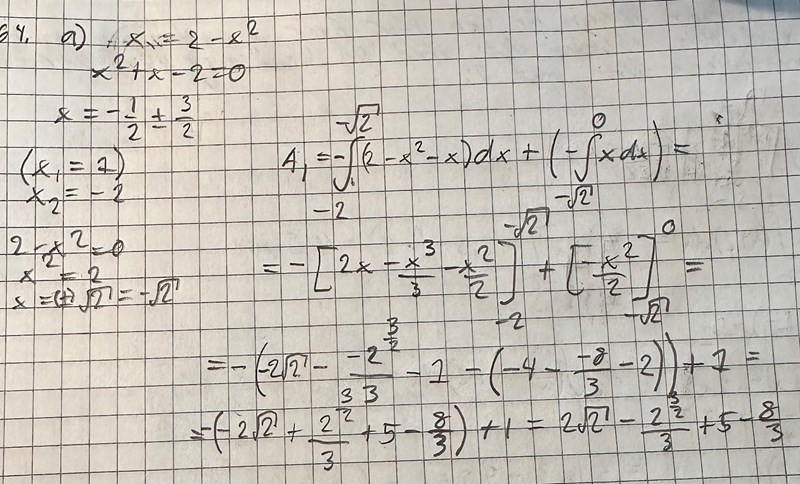 64. a) x = 2 - x²
x² + x - 2 = 0
x = -1/2 ± 3/2
(x₁ = 1)
x₂ = -2
A₁ = -∫_{-2}^{-√2} (2 - x² - x)dx + (-∫_{-√2}^{0} x dx) =
2 - x² = 0
x² = 2
x = (±)√2 = -√2
= -[2x - x³/3 - x²/2]_{-2}^{-√2} + [-x²/2]_{-√2}^{0} =
= -(-2√2 - (-2^{3/2})/3 - 1 - (-4 - (-8)/3 - 2)) + 1 =
= -(-2√2 + 2^{3/2}/3 + 5 - 8/3) + 1 = 2√2 - 2^{3/2}/3 + 5 - 8/3